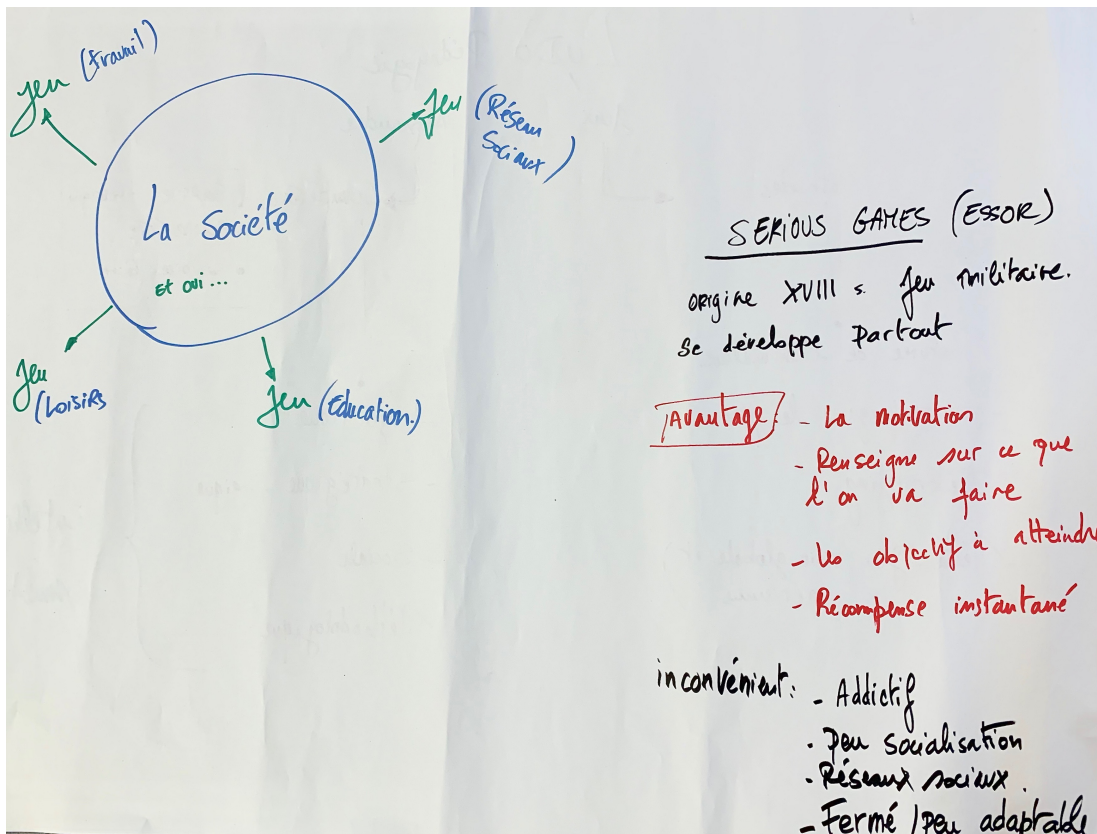 Jeu (travail)
Jeu (Réseau
Sociaux)
La Société
Et oui ...
Jeu
(Loisirs
Jeu (Education.)
SERIOUS GAMES (ESSOR)
origine XVIII s. Jeu militaire.
se développe Partout
Avantage: - La motivation
- Renseigne sur ce que
l'on va faire
- Les objectif à atteindre
- Récompense instantané
inconvénient: - Addictif
- peu socialisation
- Réseaux sociaux.
- Fermé / peu adaptable